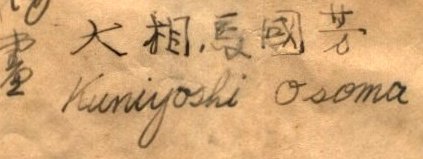 大相馬國芳
Kuniyoshi Osoma
畫